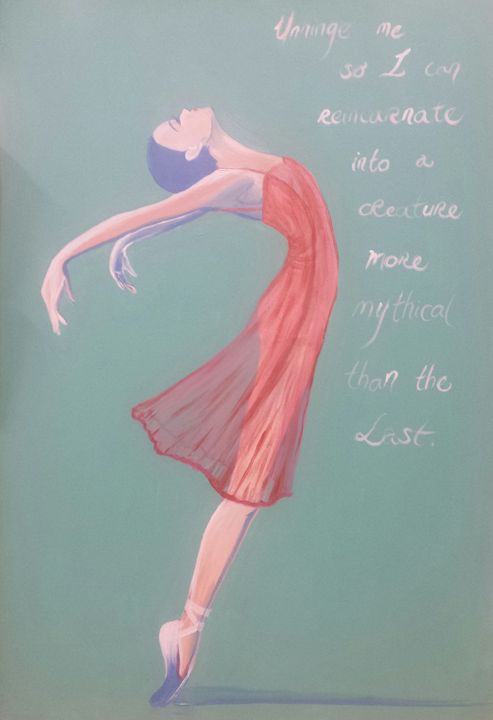 Unhinge me
so I can
reincarnate
into a
creature
more
mythical
than the
Last.